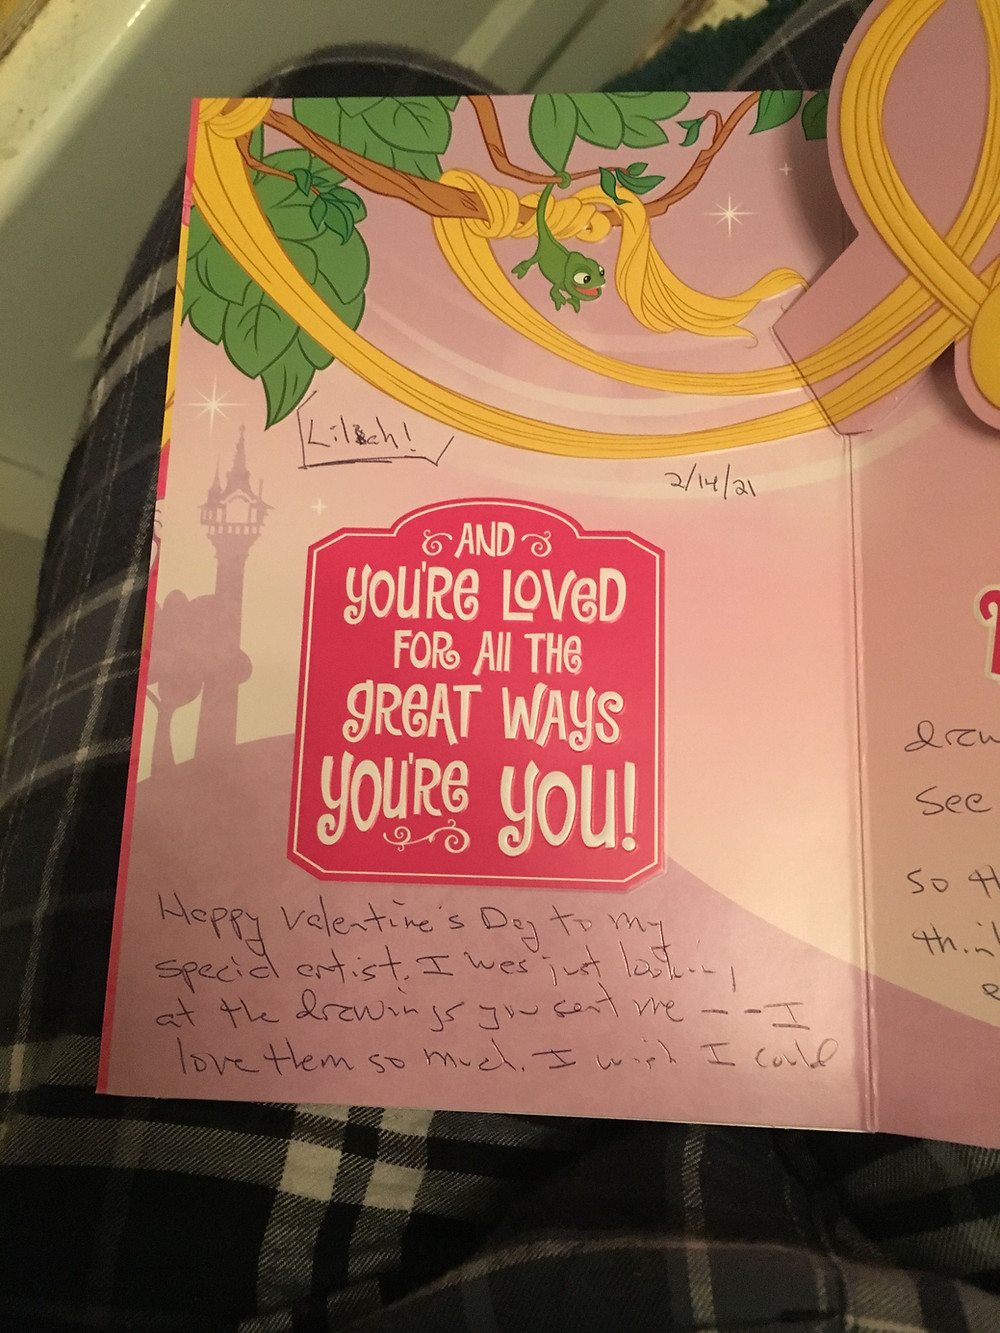 Lilah!
2/14/21
AND
YOU'RE LOVED
FOR All THE
gREAT WAYS
YOU'RE YOU!
Happy Valentine's Day to my
special artist. I was just looking
at the drawings you sent me -- I
love them so much. I wish I could
draw
see
so th
thin